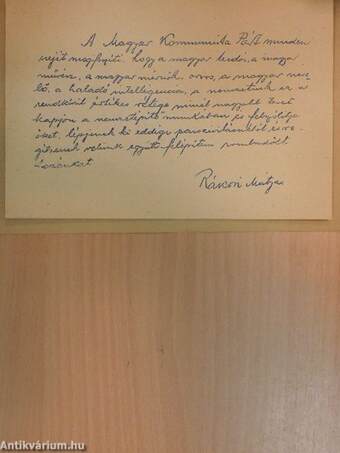 A Magyar Kommunista Párt minden
erejét megfeszíti, hogy a magyar tudós, a magyar
művész, a magyar mérnök, orvos, a magyar nev
elő, a haladó intelligencia, a nemzetünk ez a
rendkívül értékes rétege minél nagyobb teret
kapjon a nemzetépítő munkában és felszólítja
őket, lépjenek ki eddigi passzivitásukból és se
gítsenek velünk együtt felépíteni rombadőlt
hazánkat
Rákosi Mátyás
Antikvárium.hu